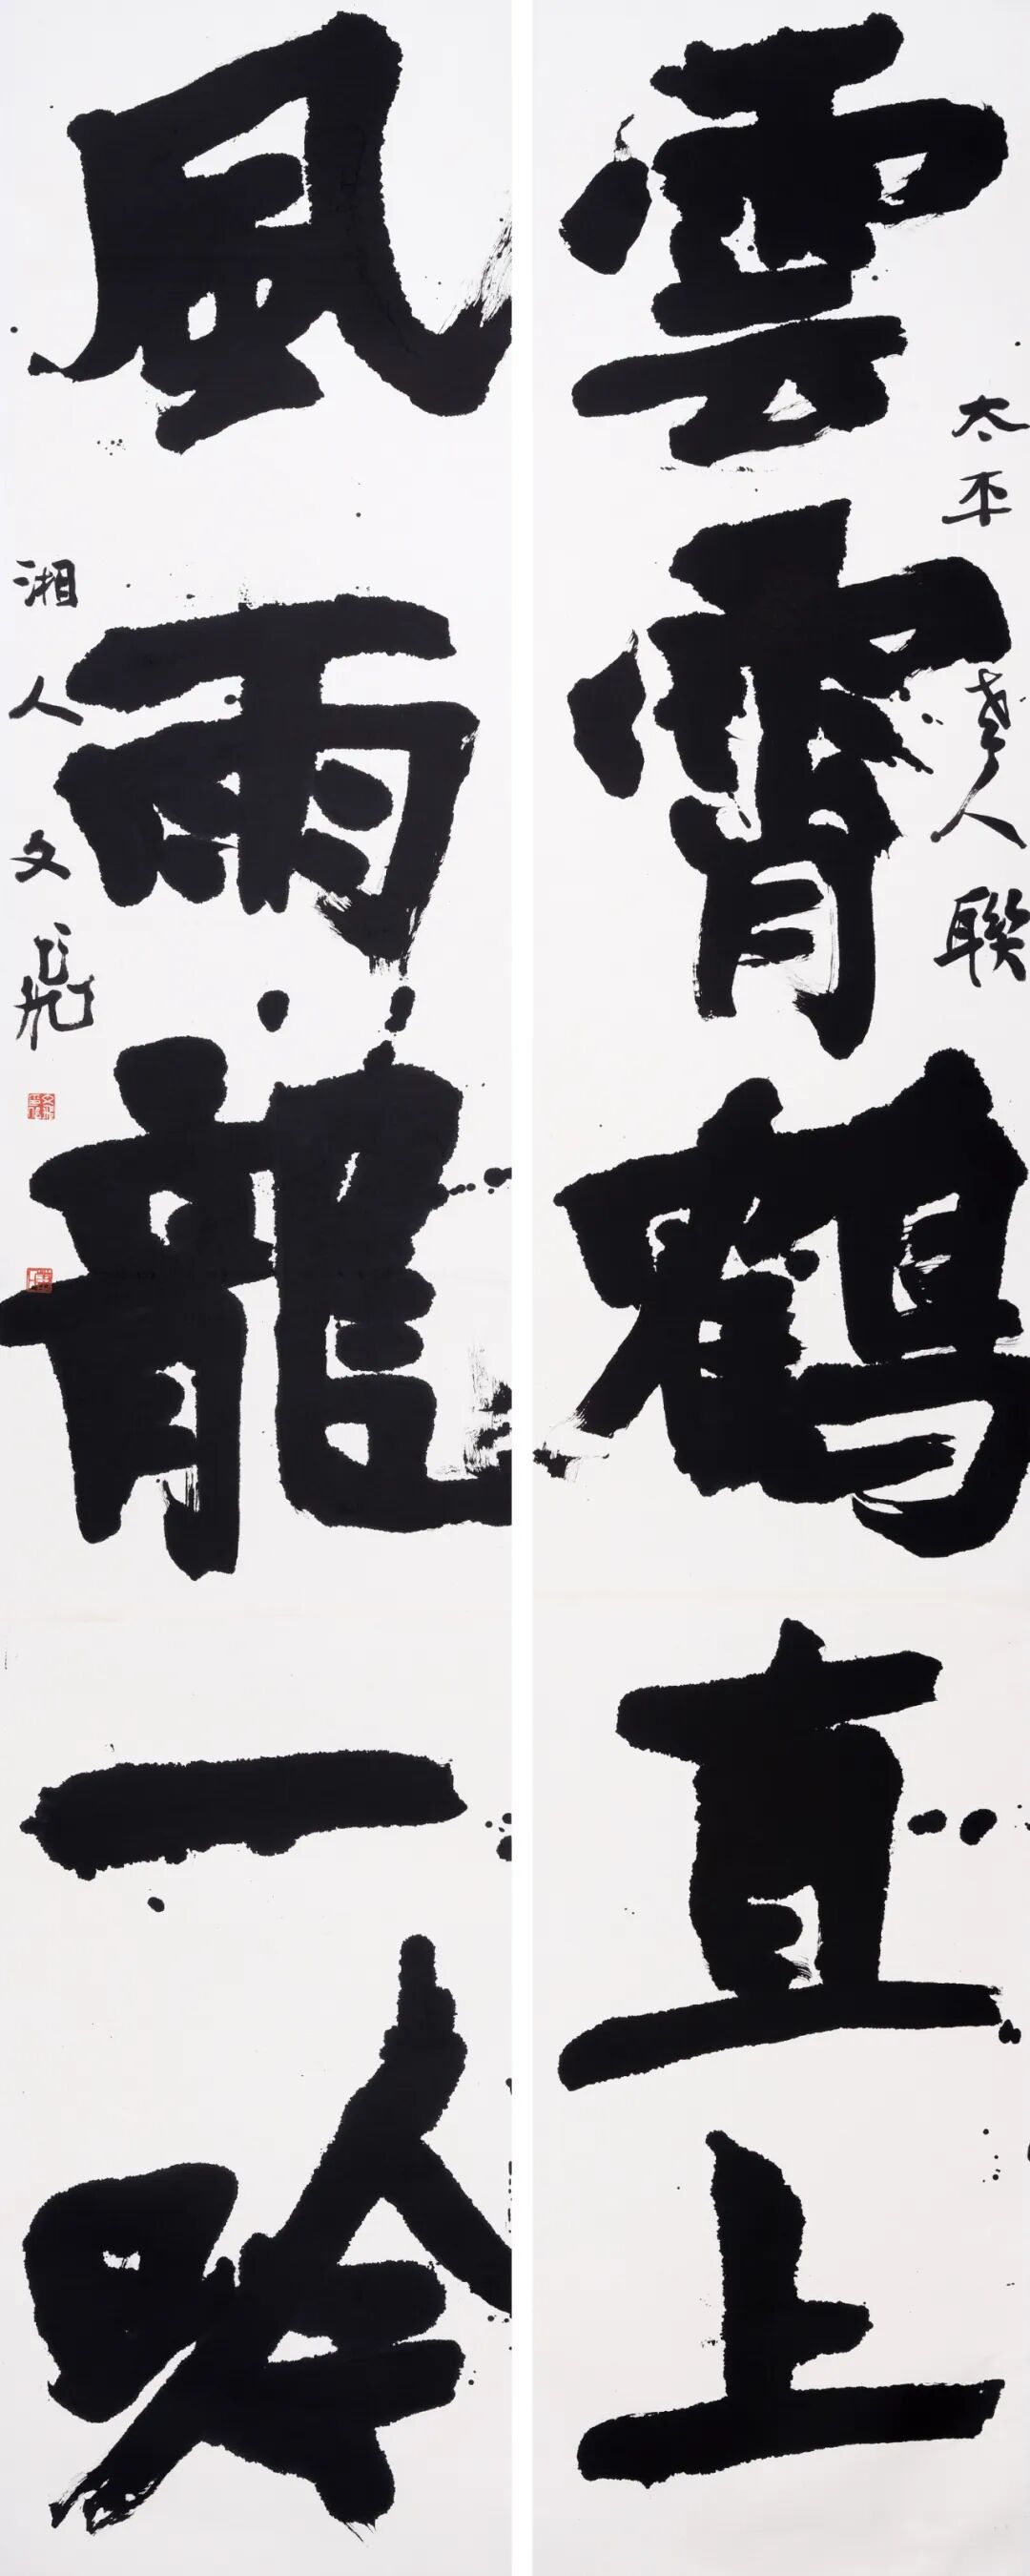 雲霄鶴直上
太平老人聯
風雨龍一吟
湘人文